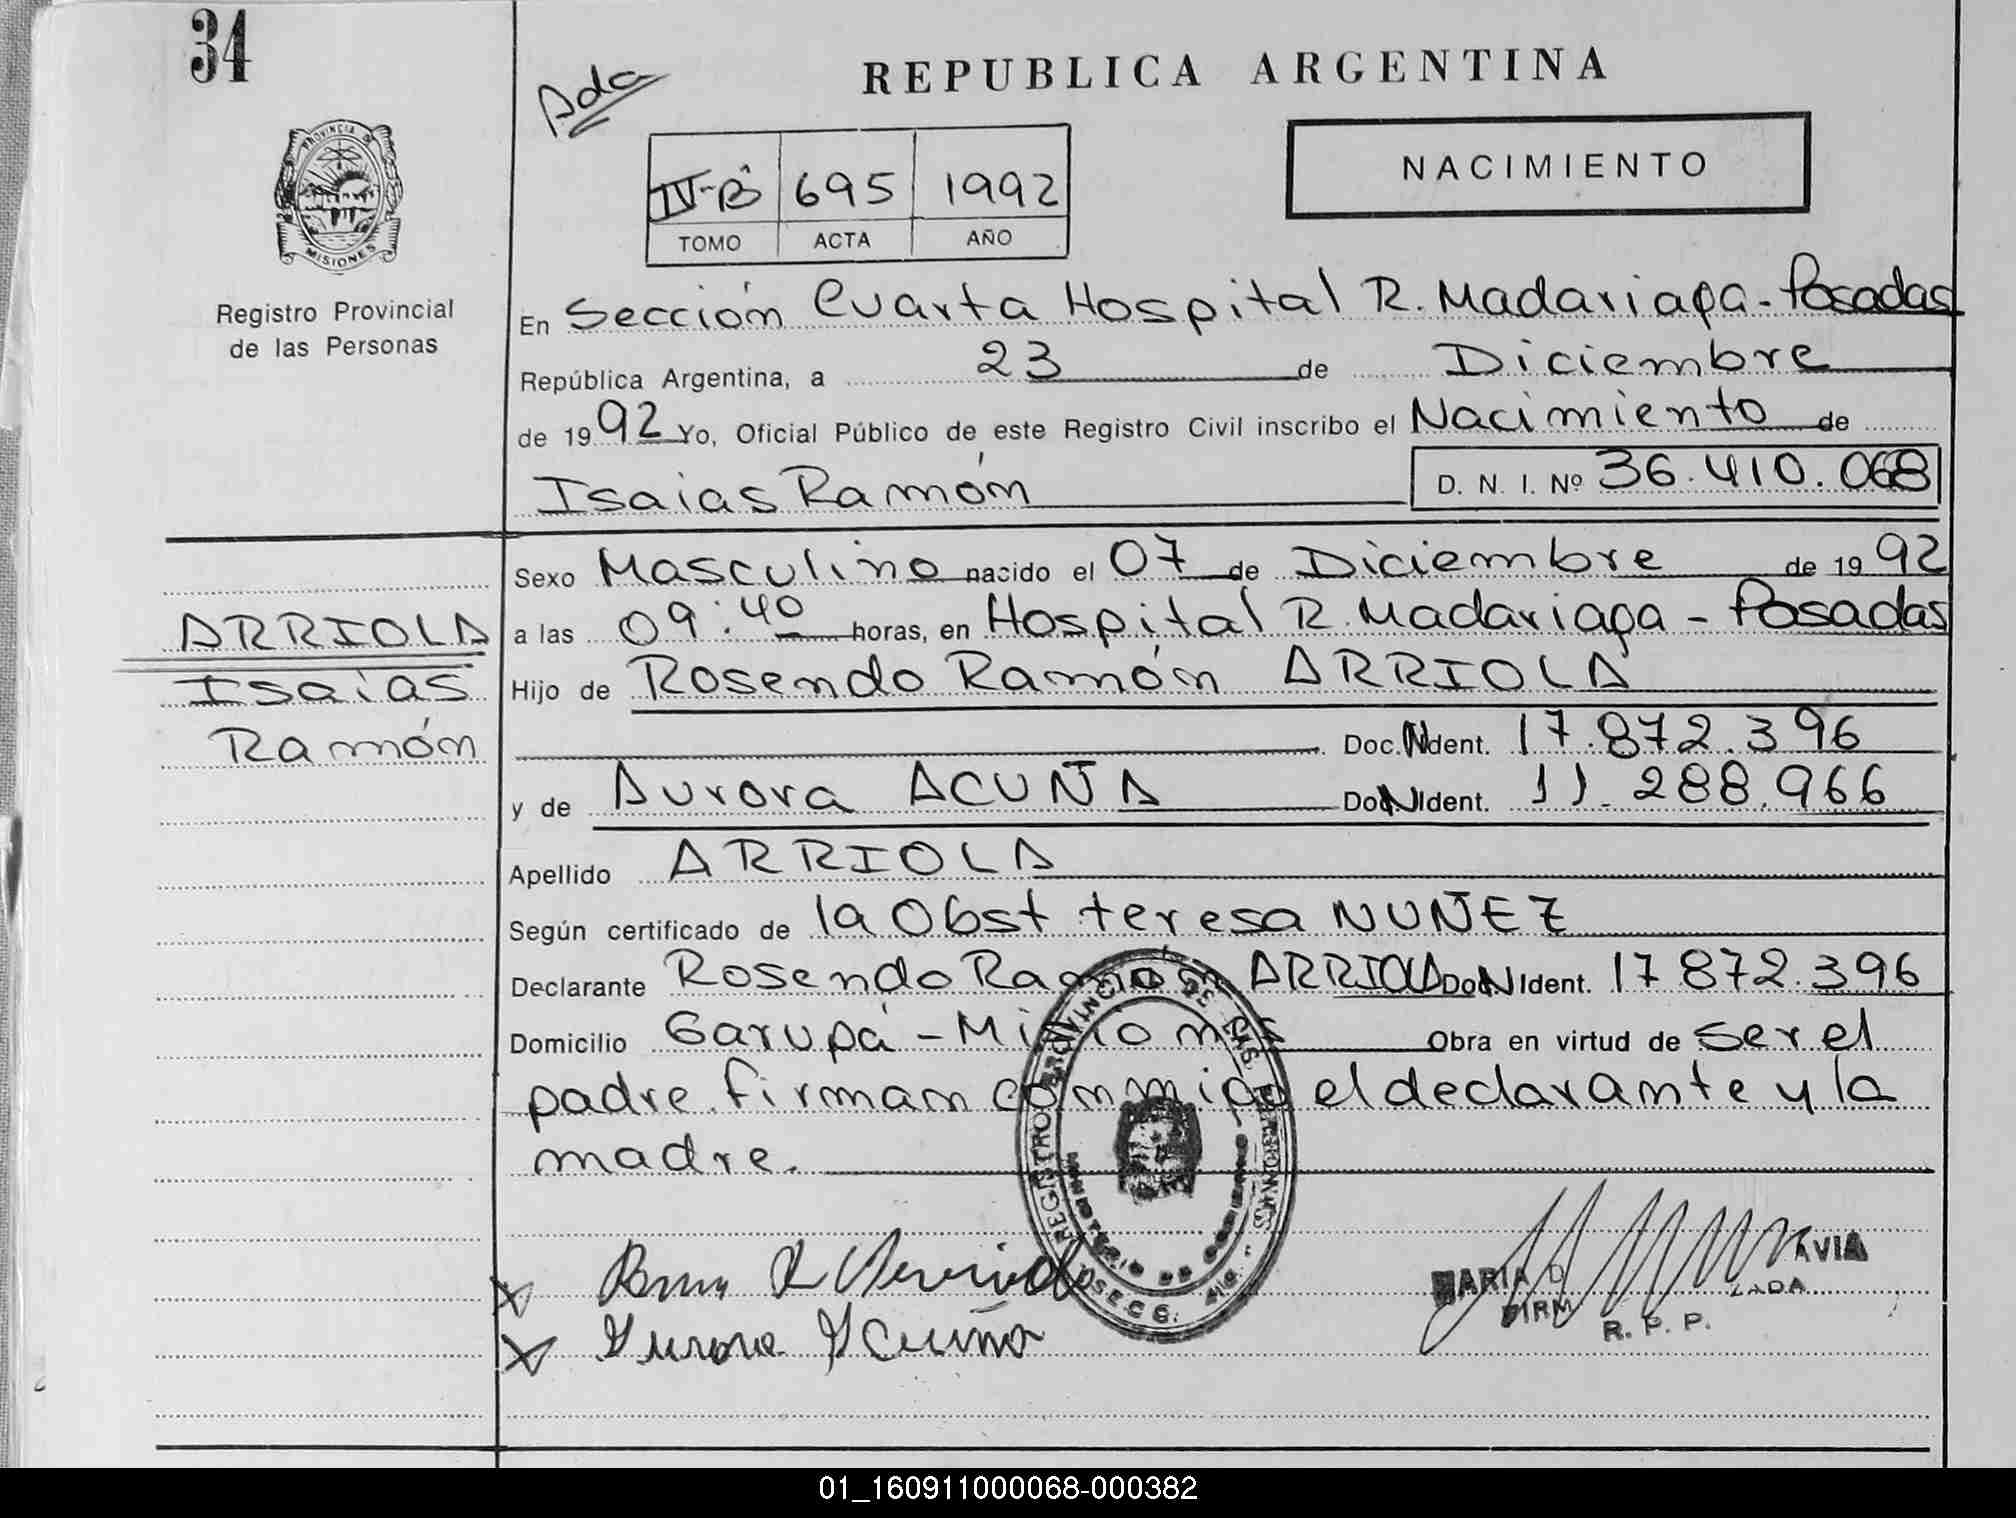 34
Ada
REPUBLICA ARGENTINA
PROVINCIA DE MISIONES
Registro Provincial
de las Personas
IV-Bº 695 1992
TOMO ACTA AÑO
NACIMIENTO
En Sección Cuarta Hospital R. Madariaga - Posadas
República Argentina, a 23 de Diciembre
de 1992 Yo, Oficial Público de este Registro Civil inscribo el Nacimiento de
Isaias Ramón D. N. I. Nº 36.410.068
Sexo Masculino nacido el 07 de Diciembre de 1992
a las 09:40 horas, en Hospital R. Madariaga - Posadas
ARRIOLA
Isaías
Ramón
Hijo de Rosendo Ramón ARRIOLA
Doc. N Ident. 17.872.396
y de Aurora ACUÑA Doc N Ident. 11.288.966
Apellido ARRIOLA
Según certificado de la Obst teresa NUÑEZ
Declarante Rosendo Ramón ARRIOLA Doc N Ident. 17 872.396
Domicilio Garupá - Misiones Obra en virtud de ser el
padre. firman conmigo el declarante y la
madre.
REGISTRO PROVINCIAL DE LAS PERSONAS
Aurora Acuña
MARIA
R. P. P.
01_160911000068-000382